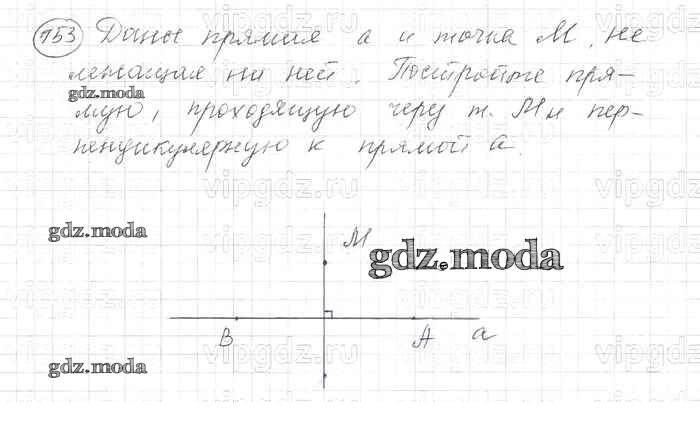 153 Даны прямая а и точка М, не
лежащая на ней. Постройте пря-
gdz.moda
мую, проходящую через т. М и пер-
пендикулярную к прямой а.
vipgdz.ru
gdz.moda
М
gdz.moda
В
А
а
gdz.moda
vipgdz.ru